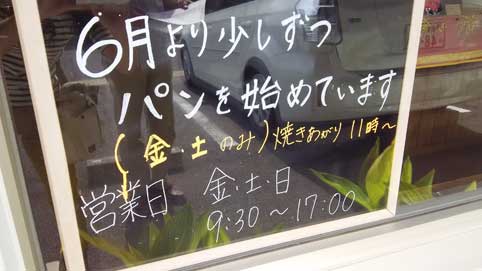 6月より少しずつ
パンを始めています
(金・土のみ)焼きあがり11時～
営業日 金・土・日
9:30～17:00